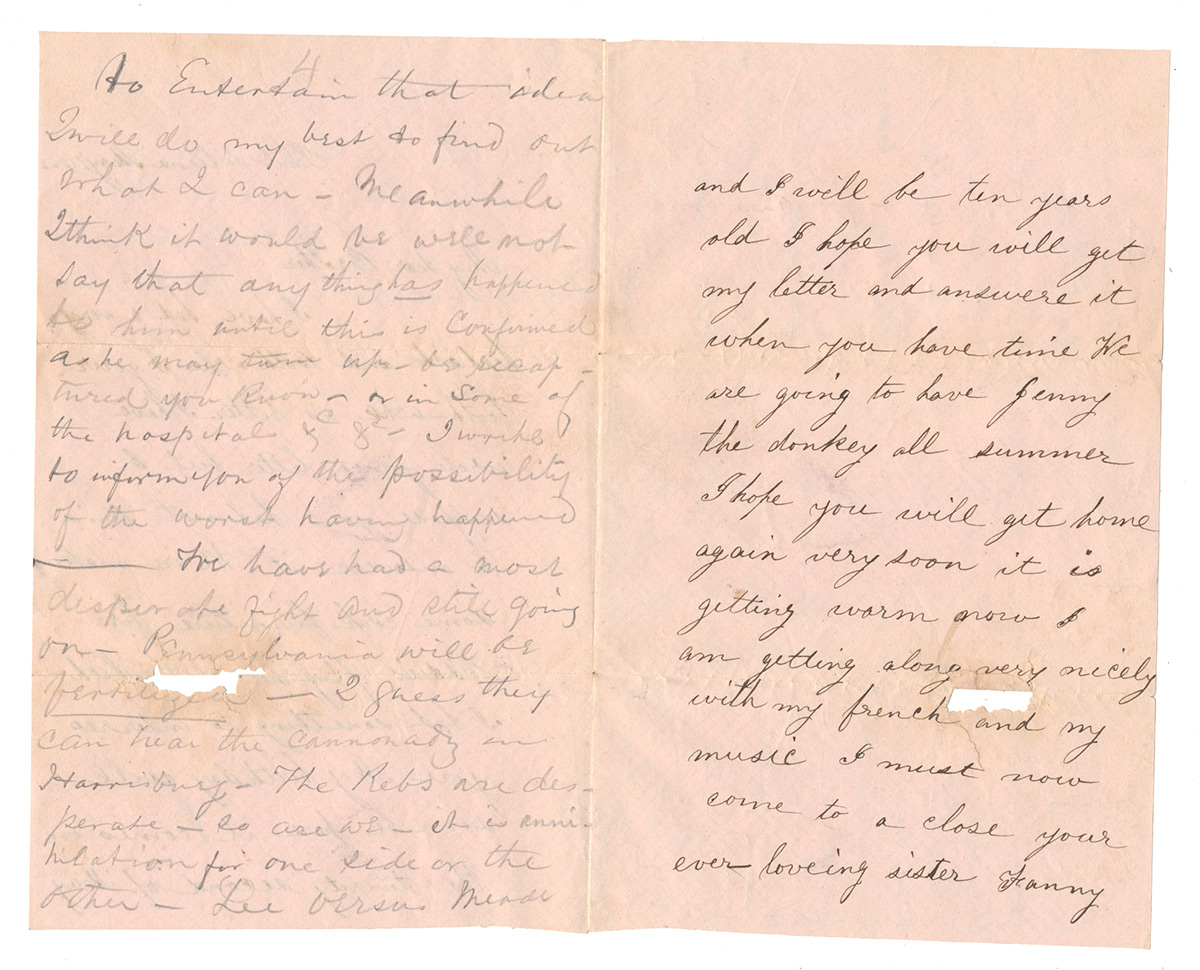 4
to Entertain that idea
I will do my best to find out
what I can – Meanwhile
I think it would be well not
say that anything has happened
to him until this is Confirmed
as he may turn up – be recap-
tured you know – or in some of
the hospitals &c &c – I write
to inform you of the possibility
of the worst having happened
— We have had a most
desperate fight and still going
on – Pennsylvania will be
fertilized — I guess they
can hear the cannonady in
Harrisburg – The Rebs are des-
perate – so are we – it is anni-
hilation for one side or the
other – Lee versus Meade
and I will be ten years
old I hope you will get
my letter and answere it
when you have time We
are going to have Jenny
the donkey all summer
I hope you will get home
again very soon it is
getting warm now I
am getting along very nicely
with my french and my
music I must now
come to a close your
ever loveing sister Fanny